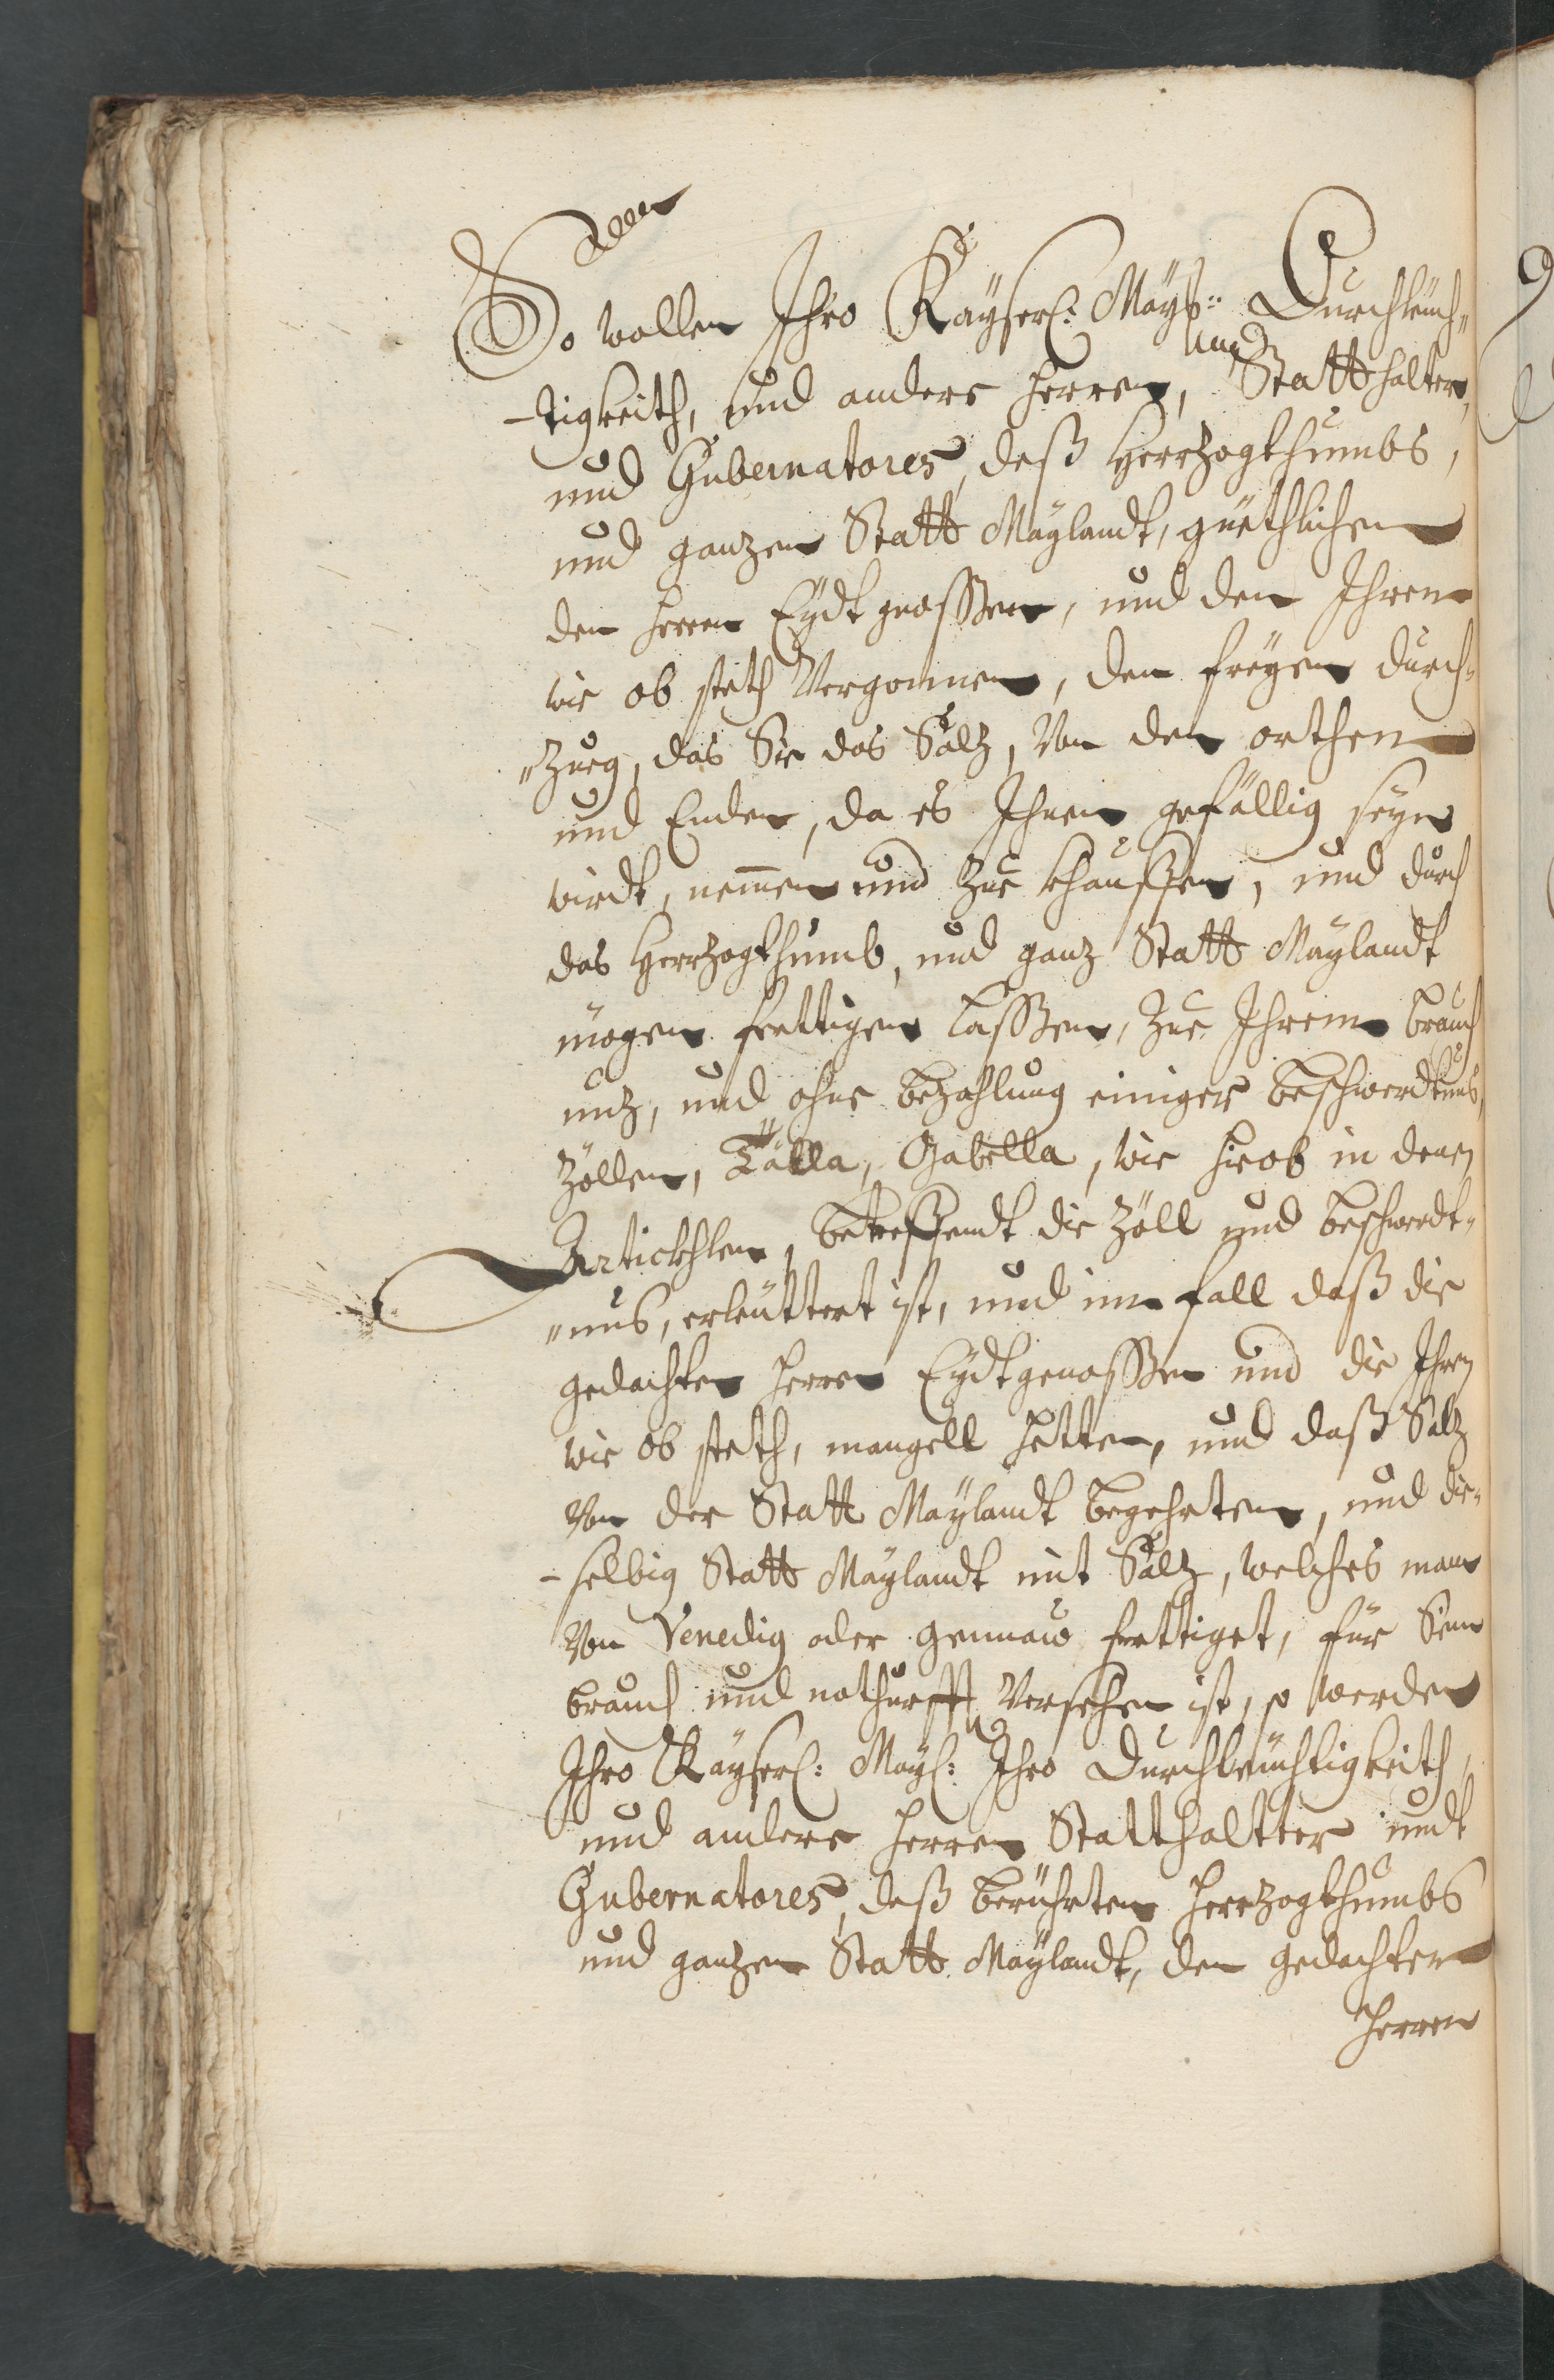 So wollen Ihro Kayserl: Mays:: Durchleuch„
-tigkeith, und andere Herren, und Statthalter,
und Gubernatores, deß Herzogthumbs,
und ganzen Statt Maylandt, güethlichen
den Herren Eydtgnossen, und den Ihren
wie ob steth Vergonnen, den freyen durch„
„Zueg, das Sie das Saltz, Von den orthen
und Enden, da es Ihnen gefällig seyn
wirdt, nemen und Zue khauffen, und durch
das Herrzogthumb, und ganz Statt Maylandt
mögen ferttigen lassen, Zue Ihrem brauch
nuz, und ohne bezahlung einiger beschwerdtnus,
Zöllen, Talla, Gabella, wie hieob in denen
Artickhlen, betreffendt die Zöll und beschwerdt„
„nus, erleuttert ist, und im fall daß die
gedachten Herren Eydtgenossen und die Ihren
wie ob steth, mangell hetten, und daß Saltz
Von der Statt Maylandt begehrten, und die„
-selbig Statt Maylandt mit Saltz, welches man
Von Venedig oder Gennaw ferttiget, für Sein
brauch und nothurfft Versehen ist, so werden
Ihro Kayserl: Mayl: Ihro Durchleuchtigkeith,
und andere Herren Statthaltter undt
Gubernatores, deß berührten Herrzogthumbs
und ganzen Statt Maylandt, den gedachten
Herren